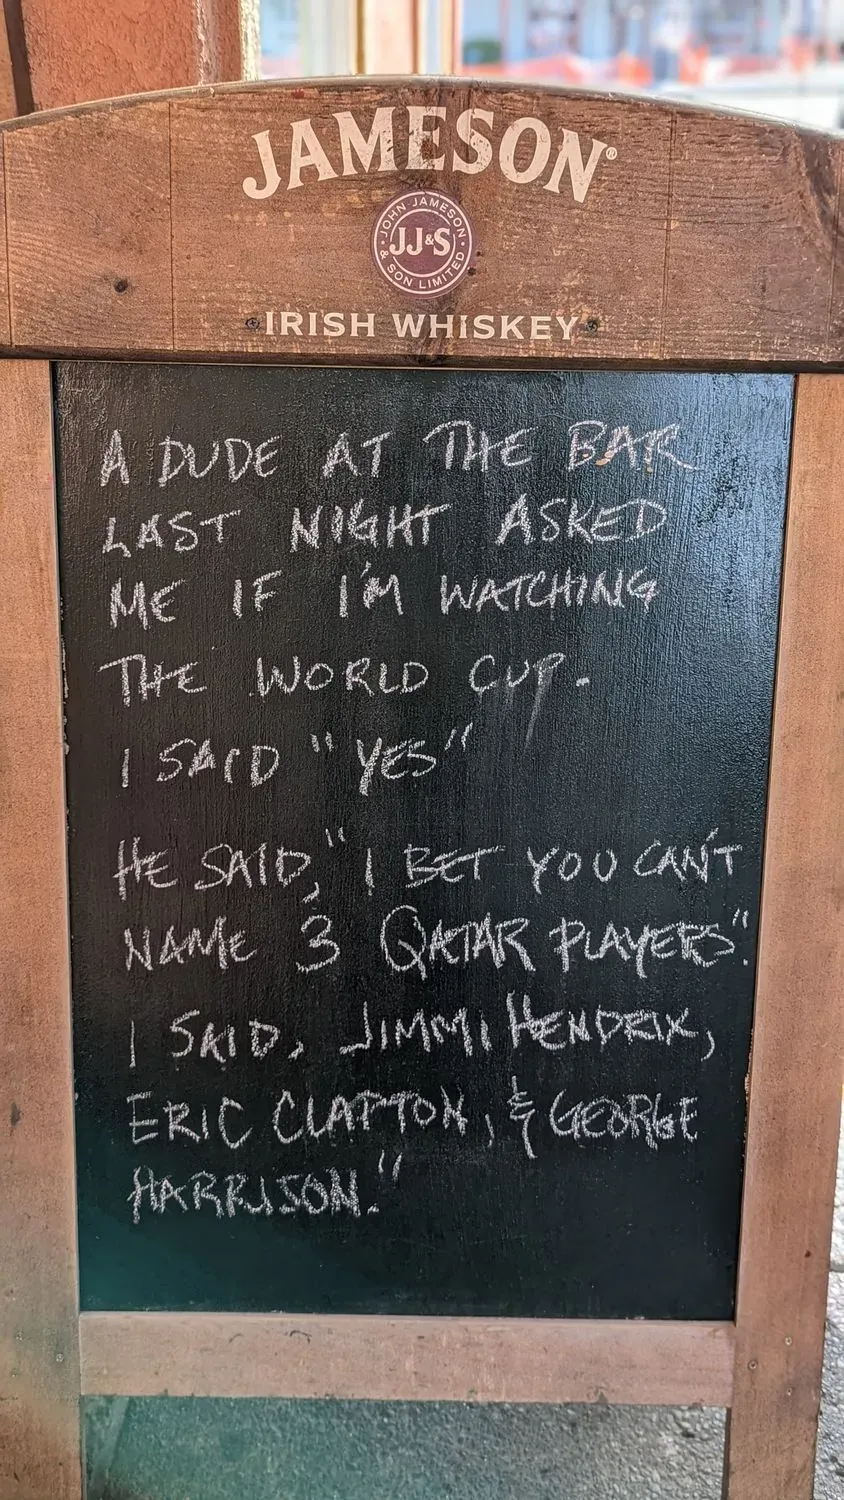 JAMESON®
JOHN JAMESON
JJ&S
& SON LIMITED
IRISH WHISKEY
A DUDE AT THE BAR
LAST NIGHT ASKED
ME IF I'M WATCHING
THE WORLD CUP.
I SAID "YES"
HE SAID, "I BET YOU CAN'T
NAME 3 QATAR PLAYERS".
I SAID, JIMMI HENDRIX,
ERIC CLAPTON, & GEORGE
HARRISON."